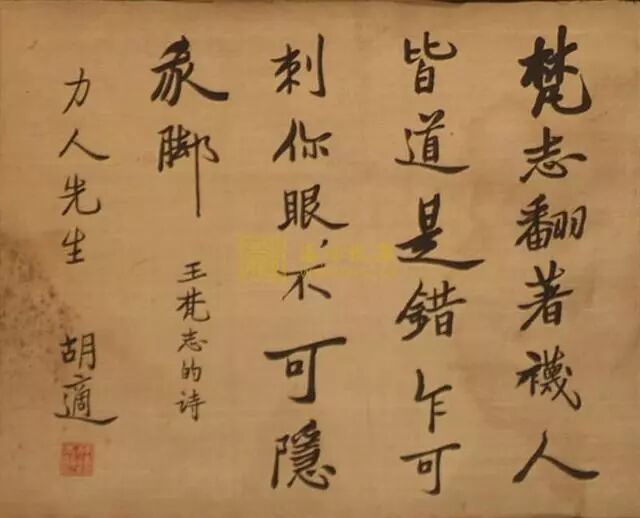 梵志翻著襪人
皆道是錯乍可
刺你眼、不可隱
我脚
王梵志的詩
力人先生
胡適